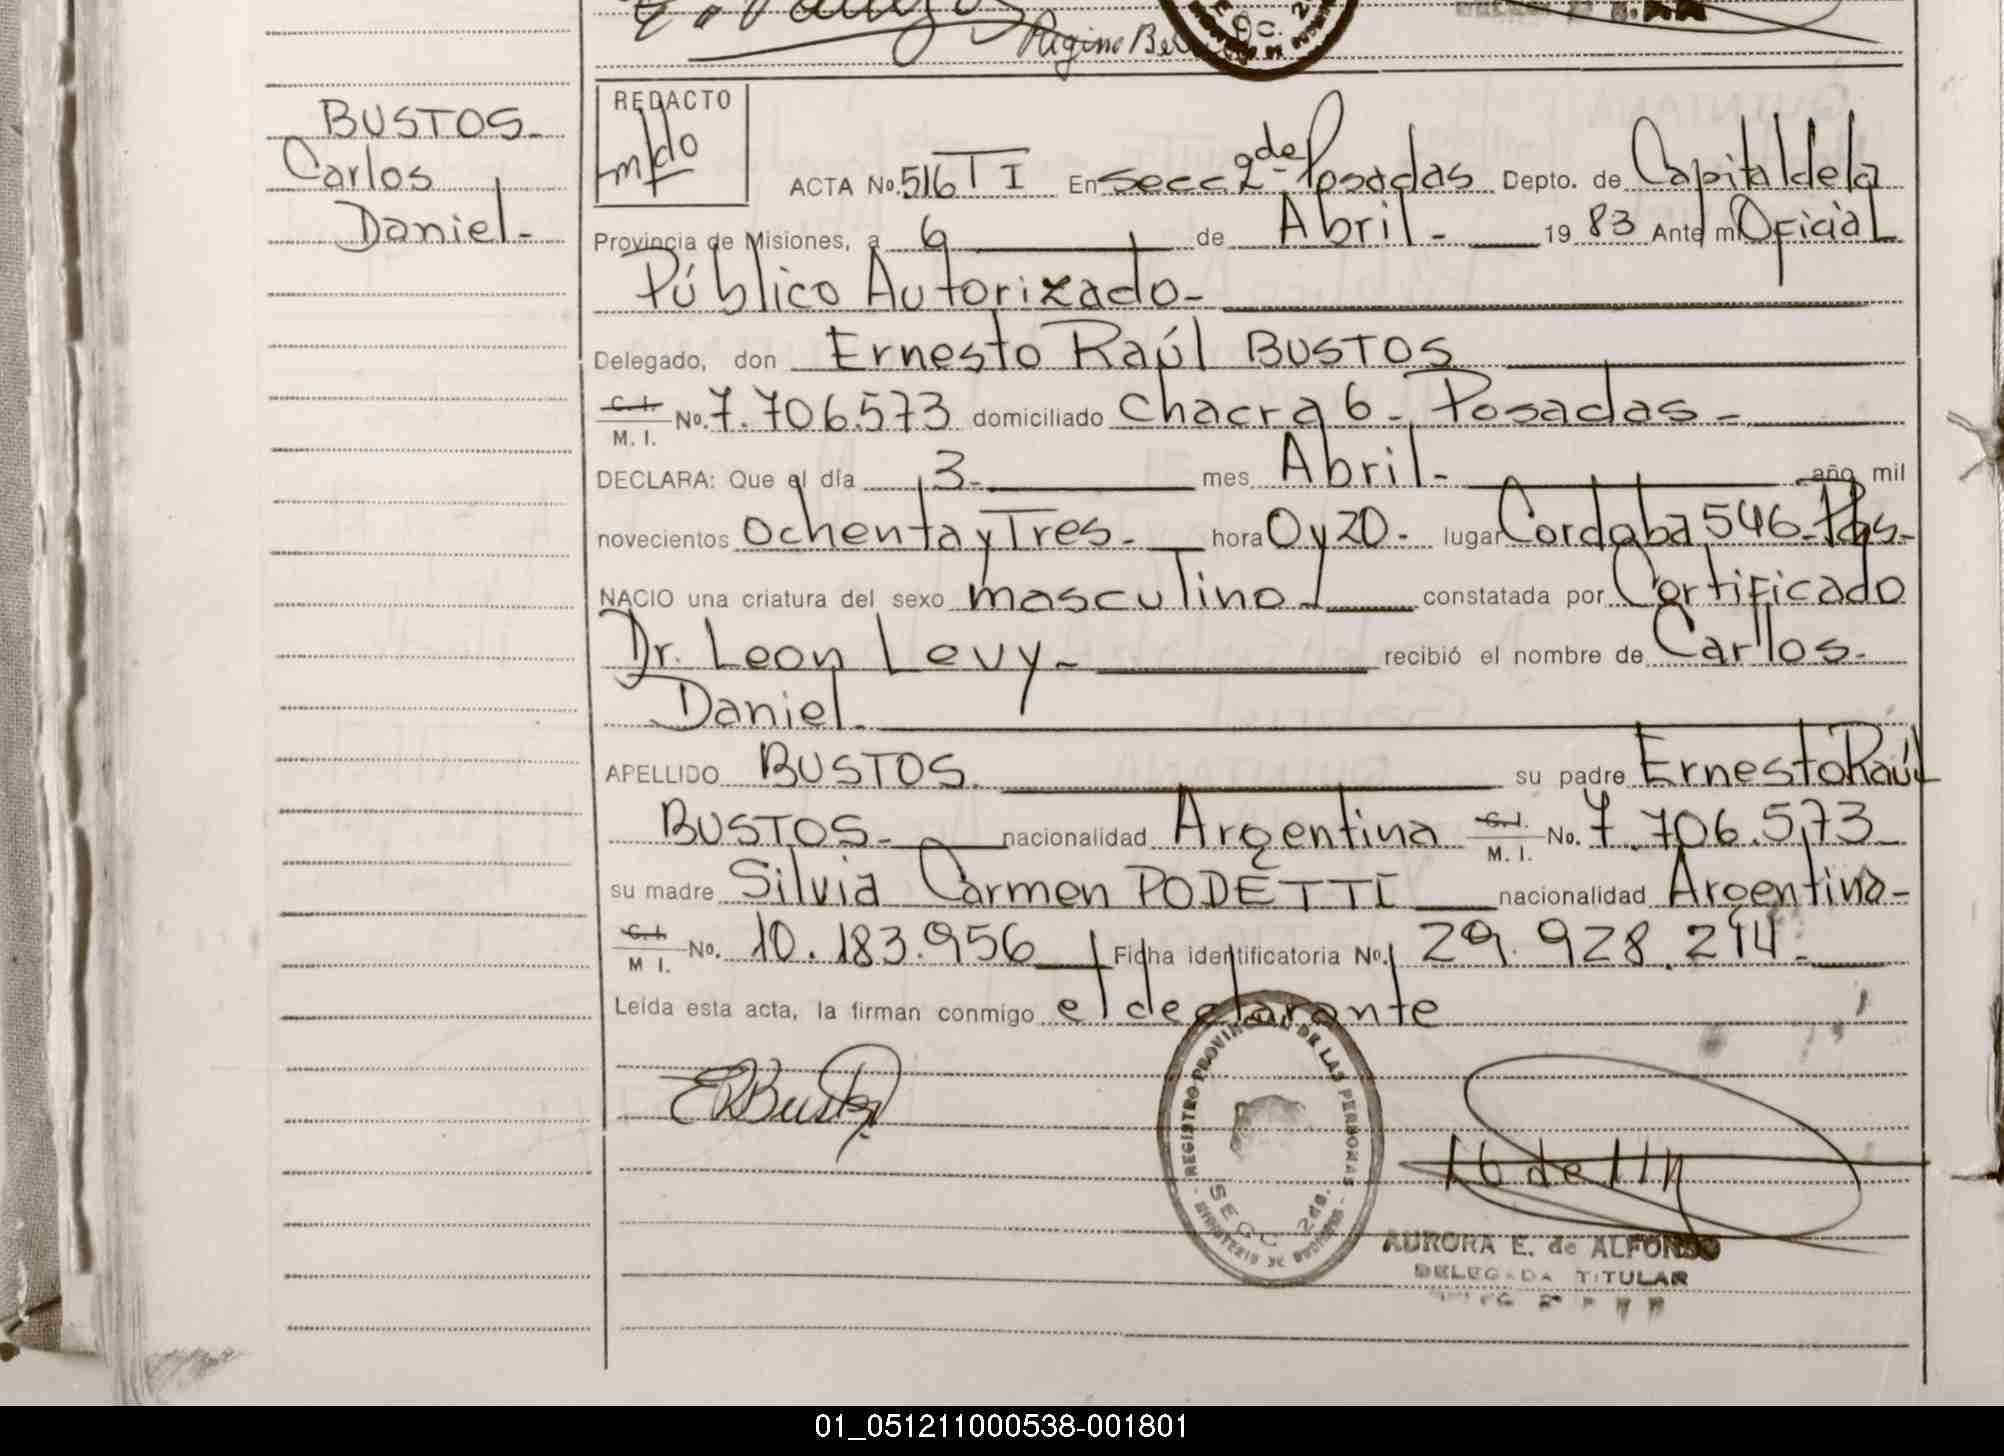 Regino Be
BUSTOS-
Carlos
Daniel-
REDACTO
ACTA No. 516 TI En Secc 2da Posadas Depto. de Capital de la
Provincia de Misiones, a 6 de Abril- 19 83 Ante mí Oficial
Público Autorizado-
Delegado, don Ernesto Raúl BUSTOS
C.I. M. I. No. 7.706.573 domiciliado Chacra 6- Posadas-
DECLARA: Que el día 3- mes Abril- año mil
novecientos ochenta y Tres- hora 0 y 20- lugar Cordoba 546-Pdas-
NACIO una criatura del sexo masculino- constatada por Certificado
Dr. Leon Levy- recibió el nombre de Carlos-
Daniel
APELLIDO BUSTOS su padre Ernesto Raúl
BUSTOS- nacionalidad Argentina C.I. M. I. No. 7.706.573
su madre Silvia Carmen PODETTI nacionalidad Argentina-
C.I. M I. No. 10.183.956 Ficha identificatoria No. 29.928.214-
Leída esta acta, la firman conmigo el declarante
ERBustos
REGISTRO PROVINCIAL DE LAS PERSONAS
SECC 2da.
AURORA E. de ALFONSO
DELEGADA TITULAR
01_051211000538-001801